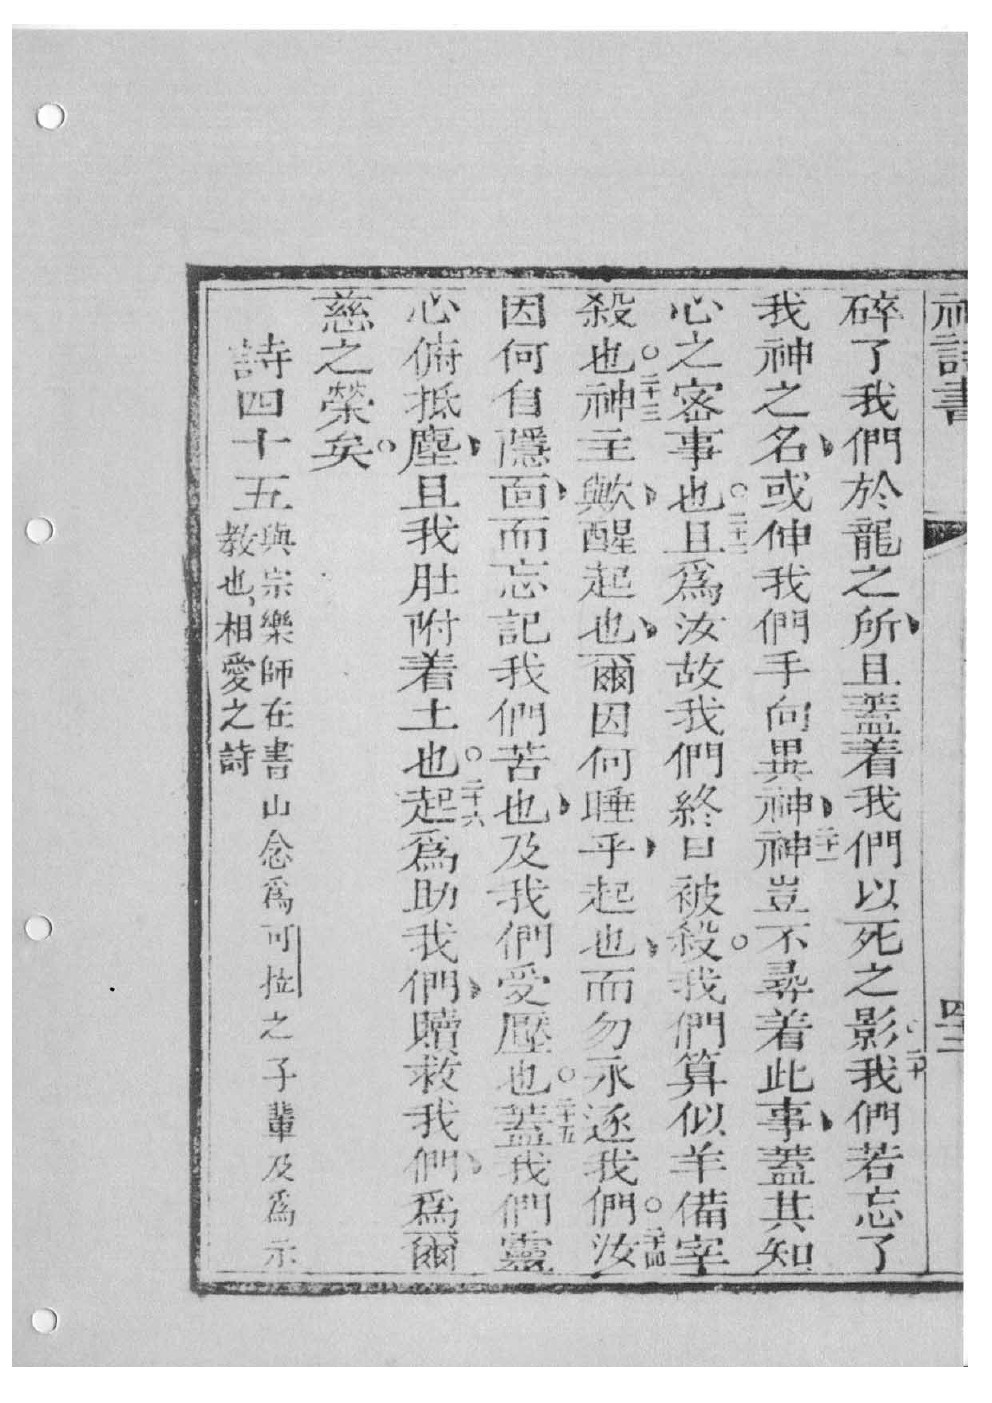 神詩書 四十三
碎了我們於龍之所、且蓋着我們以死之影。二十我們若忘了
我神之名、或伸我們手向異神、二十一神豈不尋着此事、蓋其知
心之密事也。二十二且爲汝故我們終日被殺。我們算似羊備宰
殺也。二十三神主歟、醒起也、爾因何睡乎、起也、而勿永逐我們。二十四汝
因何自隱面、而忘記我們苦也、及我們受壓也。二十五蓋我們靈
心俯抵塵、且我肚附着土也。二十六起爲助我們、贖救我們、爲爾
慈之榮矣。
詩四十五
與宗樂師在書山念爲可拉之子輩及爲示
教也、相愛之詩